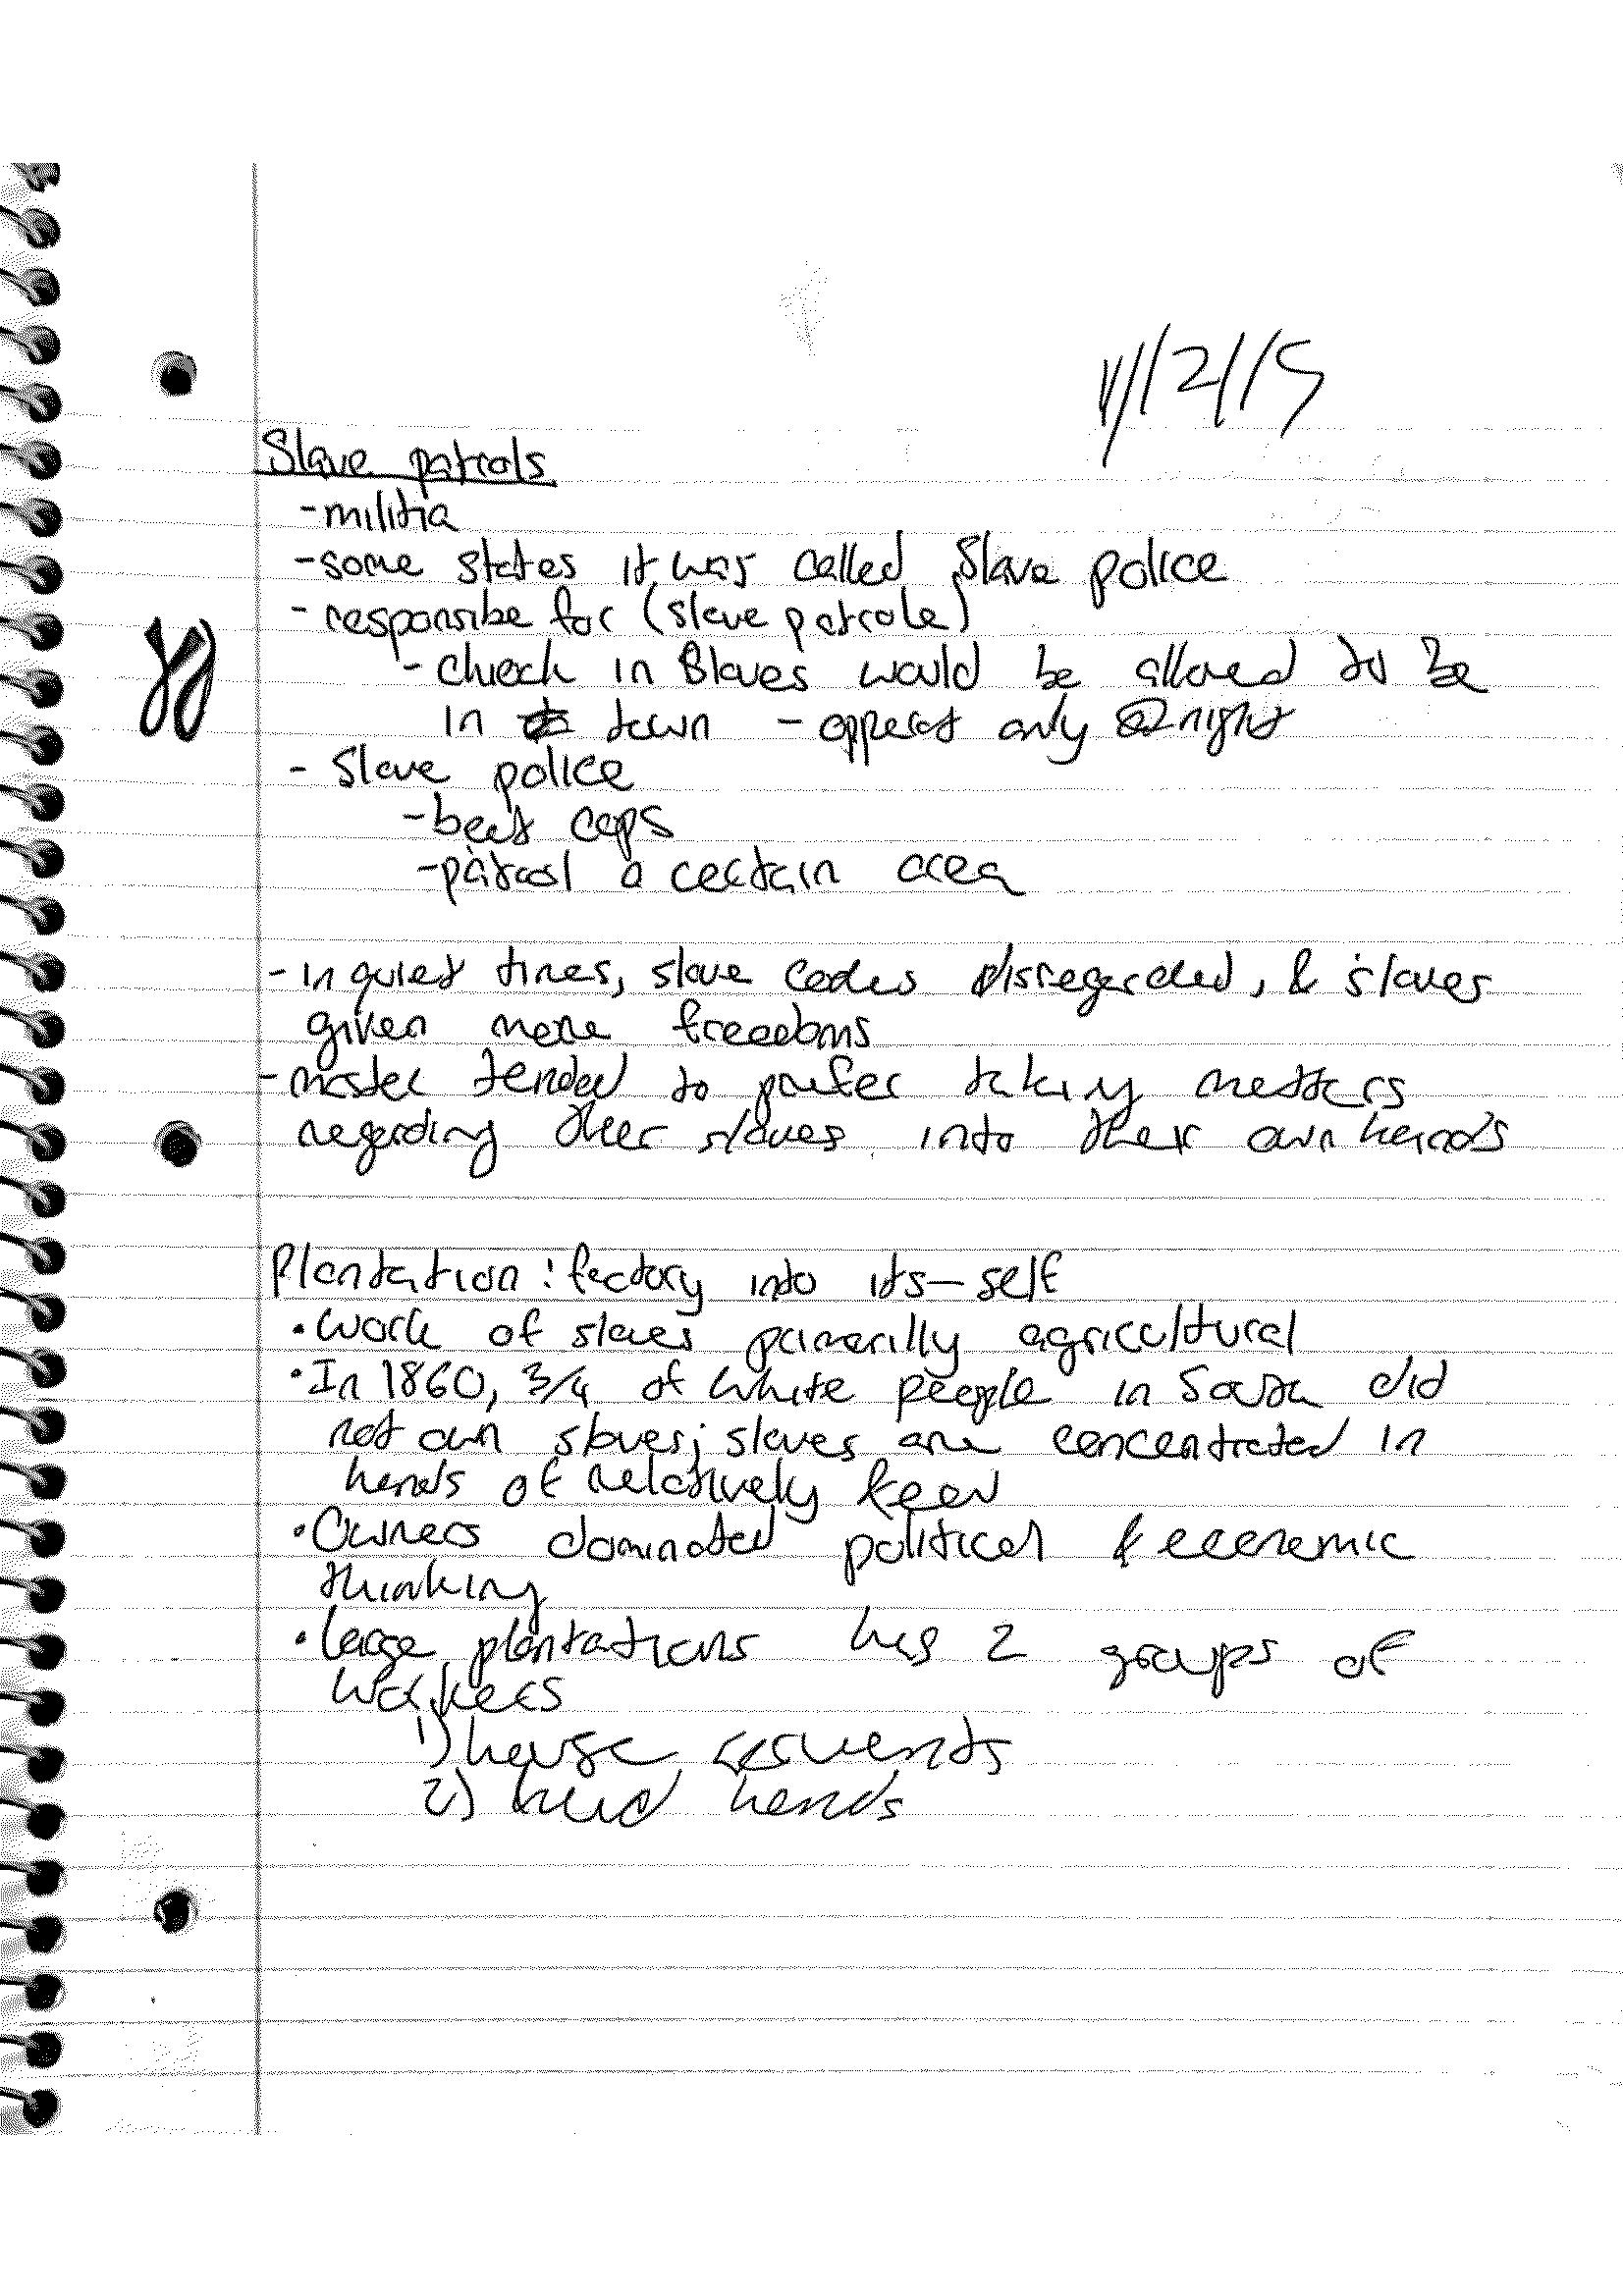 11/12/15
Slave patrols
- militia
- some states it was called Slave police
- responsibe for (slave patrole)
- check in Slaves would be allowed to be
in town - opperat only @ night
- Slave police
- beat cops
- patrol a certain area
- in quiet times, slave codes disregarded, & slaves
given more freedoms
- master tended to prefer taking matters
regarding their slaves into their own hands
Plantation: factory into its-self
• work of slaves primarilly agricultural
• In 1860, 3/4 of white people in South did
not own slaves; slaves are concentrated in
hands of relatively feew
• Owners dominated political & economic
thinking
• large plantations has 2 groups of
workers
1) house servents
2) hands